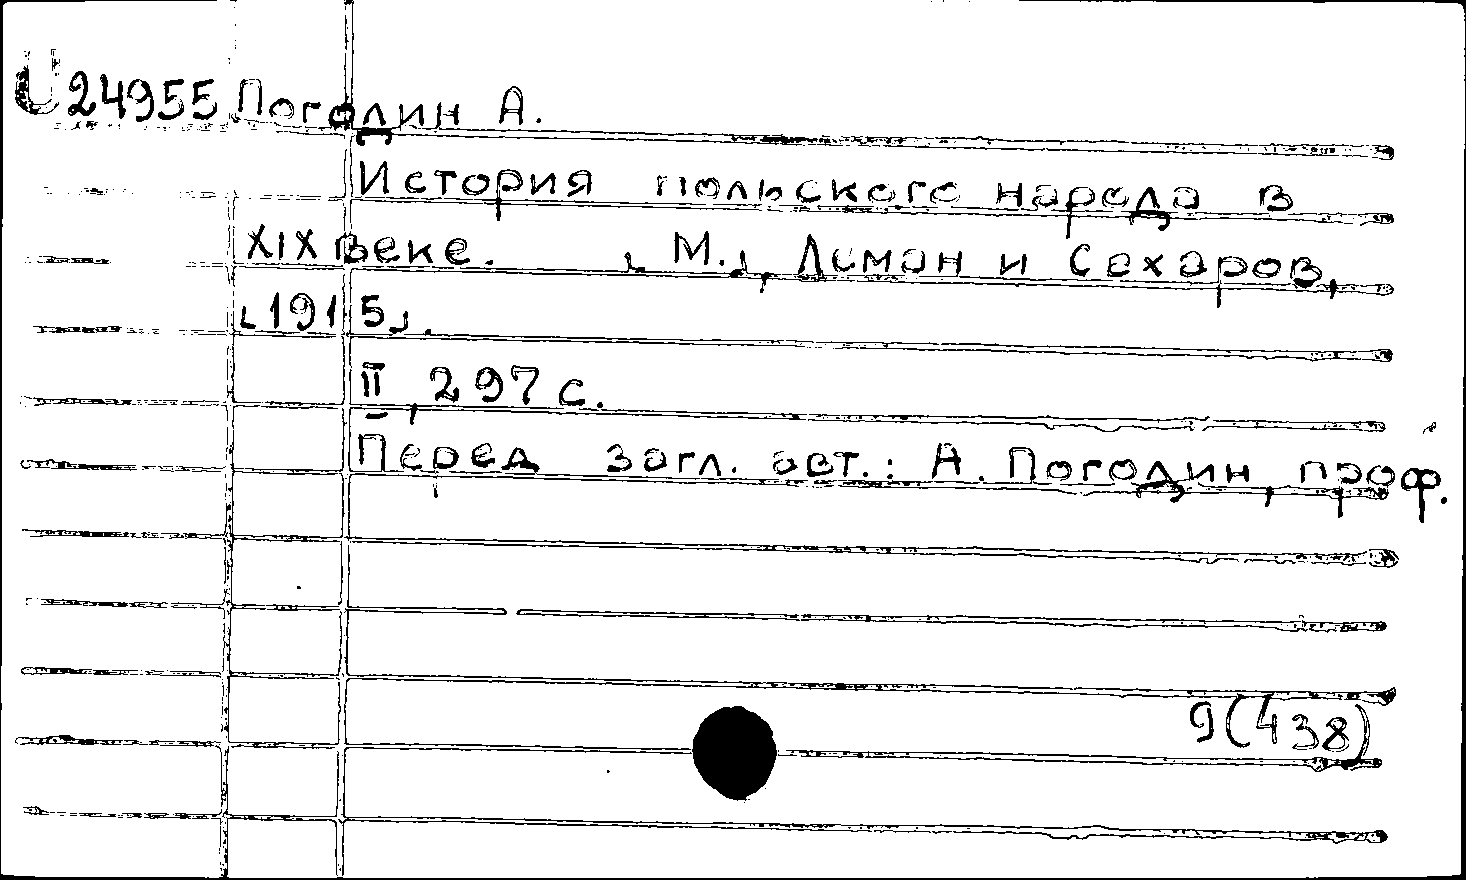 U24955 Погодин А.
История польского народа в
XIX веке. [М.], Леман и Сахаров,
[1915].
II, 297 с.
Перед загл. авт.: А. Погодин, проф.
9(438)